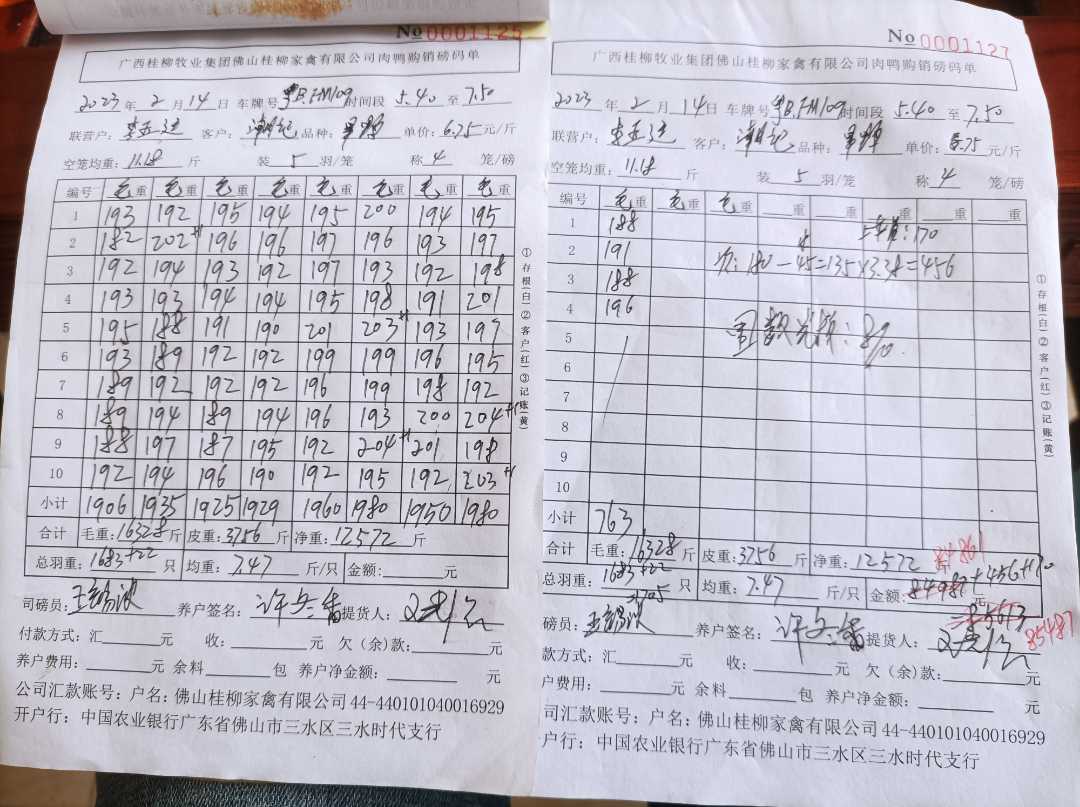 No 0001125
广西桂柳牧业集团佛山桂柳家禽有限公司肉鸭购销磅码单
2023年2月14日 车牌号 粤B.FM109 时间段 5.40 至 7.50
联营户: 客户: 品种: 单价: 6.75元/斤
空笼均重: 11.18 斤 装 5 羽/笼 称 4 笼/磅
编号 毛重 毛重 毛重 毛重 毛重 毛重 毛重 毛重
1 193 192 195 194 195 200 194 195
2 182 202+1 196 196 197 196 193 197
3 192 194 193 192 197 193 192 198
4 193 193 194 194 195 198 191 201
5 195 188 191 190 201 203+1 193 197
6 193 189 192 192 199 199 196 195
7 189 192 192 192 196 199 198 192
8 189 194 189 194 196 193 200 204+1
9 188 197 187 195 192 204+1 201 198
10 192 194 196 190 192 195 192 203+1
小计 1906 1935 1925 1929 1960 1980 1950 1980
合计 毛重: 16328 斤 皮重: 3756 斤 净重: 12572 斤
总羽重: 1683+22 只 均重: 7.47 斤/只 金额: 元
司磅员: 养户签名: 提货人:
付款方式: 汇 元 收: 元 欠(余)款: 元
养户费用: 元 余料 包 养户净金额: 元
公司汇款账号: 户名: 佛山桂柳家禽有限公司44-440101040016929
开户行: 中国农业银行广东省佛山市三水区三水时代支行
①存根(白)②客户(红)③记账(黄)
No 0001127
广西桂柳牧业集团佛山桂柳家禽有限公司肉鸭购销磅码单
2023年2月14日 车牌号 粤B.FM109 时间段 5.40 至 7.50
联营户: 客户: 品种: 单价: 6.75元/斤
空笼均重: 11.18 斤 装 5 羽/笼 称 4 笼/磅
编号 毛重 毛重 毛重 重 重 重 重 重
1 188
:170
2 191
180-45=135×3.38=456
3 188
4 196
5
:810
6
7
8
9
10
小计 763
合计 毛重: 16328 斤 皮重: 3756 斤 净重: 12572 斤
84861
总羽重: 1683+22 只 均重: 7.47 斤/只 金额: 84987+456+170 元
1705
85613
85487
磅员: 养户签名: 提货人:
款方式: 汇 元 收: 元 欠(余)款: 元
户费用: 元 余料 包 养户净金额: 元
司汇款账号: 户名: 佛山桂柳家禽有限公司44-440101040016929
户行: 中国农业银行广东省佛山市三水区三水时代支行
①存根(白)②客户(红)③记账(黄)